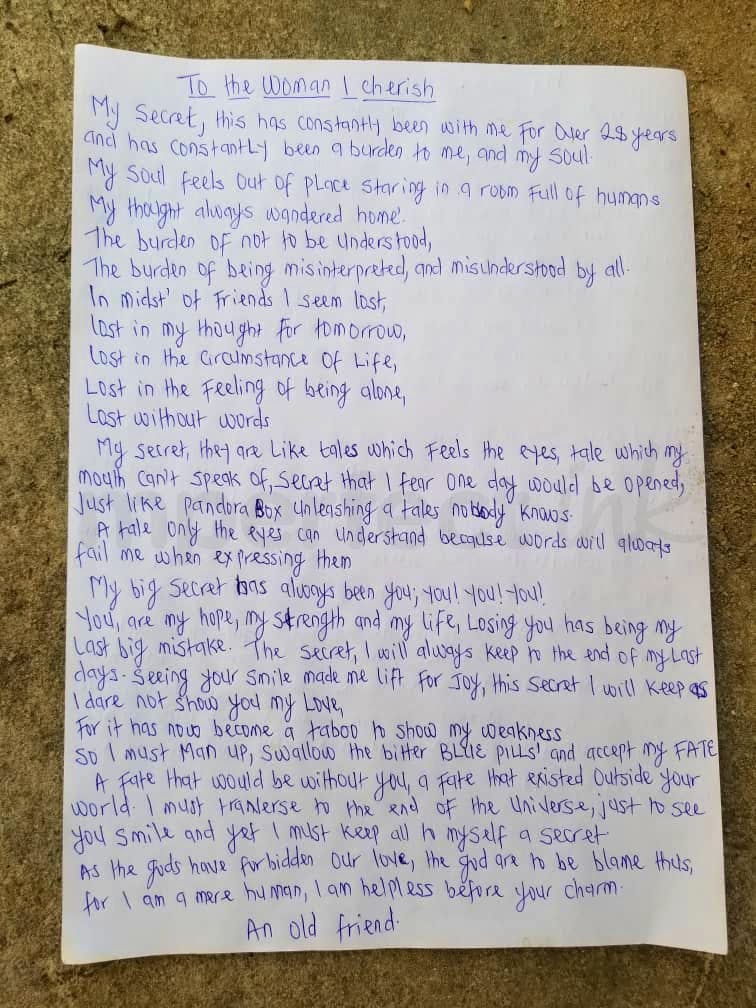 To the Woman I cherish
My Secret, this has constantly been with me for Over 28 years
and has constantly been a burden to me, and my soul.
My soul feels out of place staring in a room full of humans
My thought always wandered home.
The burden of not to be understood,
The burden of being misinterpreted, and misunderstood by all.
In midst' of friends I seem lost,
lost in my thought for tomorrow,
Lost in the circumstance of Life,
Lost in the Feeling of being alone,
Lost without words
My secret, they are like tales which Feels the eyes, tale which my
mouth can't speak of, Secret that I fear one day would be opened,
Just like Pandora Box unleashing a tales nobody knows.
A tale only the eyes can understand because words will always
fail me when expressing them
My big Secret has always been you; you! You! You!
You, are my hope, my strength and my life, Losing you has being my
Last big mistake. The Secret, I will always keep to the end of my Last
days. Seeing your smile made me lift for Joy, this secret I will keep as
I dare not show you my Love,
For it has now become a taboo to show my weakness
So I must Man up, Swallow the bitter BLUE PILLS' and accept my FATE
A Fate that would be without you, a Fate that existed Outside your
world. I must tranverse to the end of the Universe, just to see
you smile and yet I must keep all to myself a secret.
As the gods have forbidden our love, the god are to be blame thus,
for I am a mere human, I am helpless before your charm.
An old friend.